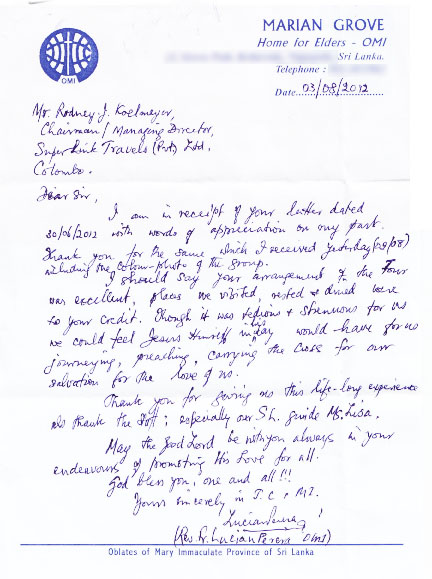 OMI
MARIAN GROVE
Home for Elders - OMI
Sri Lanka.
Telephone :
Date 03/08/2012
Mr. Rodney J. Koelmeyer,
Chairman / Managing Director,
Super Link Travels (Pvt) Ltd.
Colombo.
Dear Sir,
I am in receipt of your letter dated
30/06/2012 with words of appreciation on my part.
Thank you for the same which I received yesterday
including the colour-photo of the group.
I should say your arrangement of the Tour
was excellent, places we visited, rested & dined were
to your credit. Though it was tedious & strenuous for us
we could feel Jesus Himself in his day would-have for us
journeying, preaching, carrying the Cross for our
salvation for the love of us.
Thank you for giving us this life-long experience
also thank the staff; especially our guide Ms. Lisa.
May the God Lord be with you always in your
endeavours of promoting His Love for all.
God bless you, one and all !!!
Yours sincerely in J.C & M.I.
Lucian Perera
(Rev. Fr. Lucian Perera OMI)
Oblates of Mary Immaculate Province of Sri Lanka